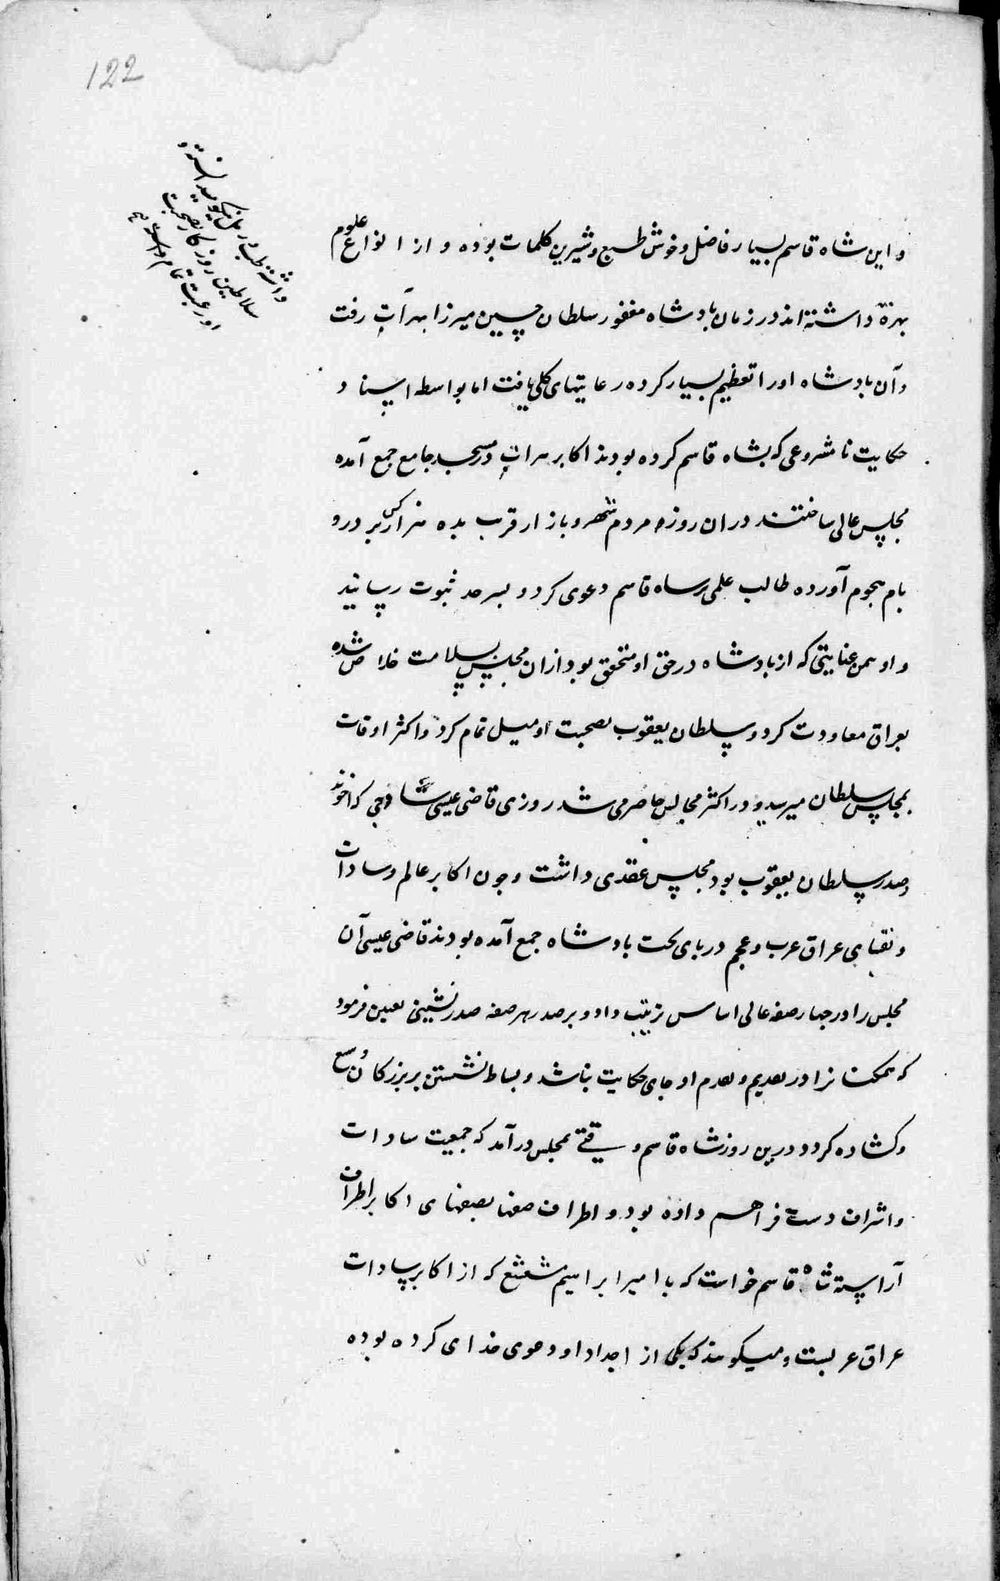 122
و این شاه قاسم بسیار فاضل و خوش طبع و شیرین کلمات بوده و از انواع علوم
بهرهٔ داشته اند در زمان بادشاه مغفور سلطان حسین میرزا بهرات رفت
و آن بادشاه او را تعظیم بسیار کرده رعایتهای کلی یافت اما بواسطه اسناد
حکایت نامشروعی که بشاه قاسم کرده بودند اکابر هرات در مسجد جامع جمع آمده
مجلس عالی ساختند دران روز مردم شهر و بازار قرب بده هزار کس بر در و
بام هجوم آورده طالب علمی بر شاه قاسم دعوی کرد و بسرحد ثبوت رسانید
و او بمن عنایتی که از بادشاه در حق او متحقق بود ازان مجلس بسلامت خلاص شده
بعراق معاودت کرد و سلطان یعقوب بصحبت او میل تمام کرد و اکثر اوقات
بمجلس سلطان میرسید و در اکثر مجالس حاضر می شد روزی قاضی عیسی ساوجی که
صدر سلطان یعقوب بود مجلس عقدی داشت و چون اکابر عالم و سادات
و نقبای عراق عرب و عجم در پای تخت بادشاه جمع آمده بودند قاضی عیسی آن
مجلس را در چهار صفه عالی اساس ترتیب داد و بر صدر هر صفه صدر نشینی تعیین فرمود
که همکنانرا در تقدیم و او جای حکایت نباشد و بساط نشستن بر بزرکان
و کشاده کردد درین روز شاه قاسم وقتی بمجلس درآمد که جمعیت سادات
و اشراف دست فراهم داده بود و اطراف صفها بصفهای اکابر اطراف
آراسته شاه قاسم خواست که با امیر ابراهیم مشعشع که از اکابر سادات
عراق عربست و میکویند که یکی از اجداد او دعوی خدای کرده بوده